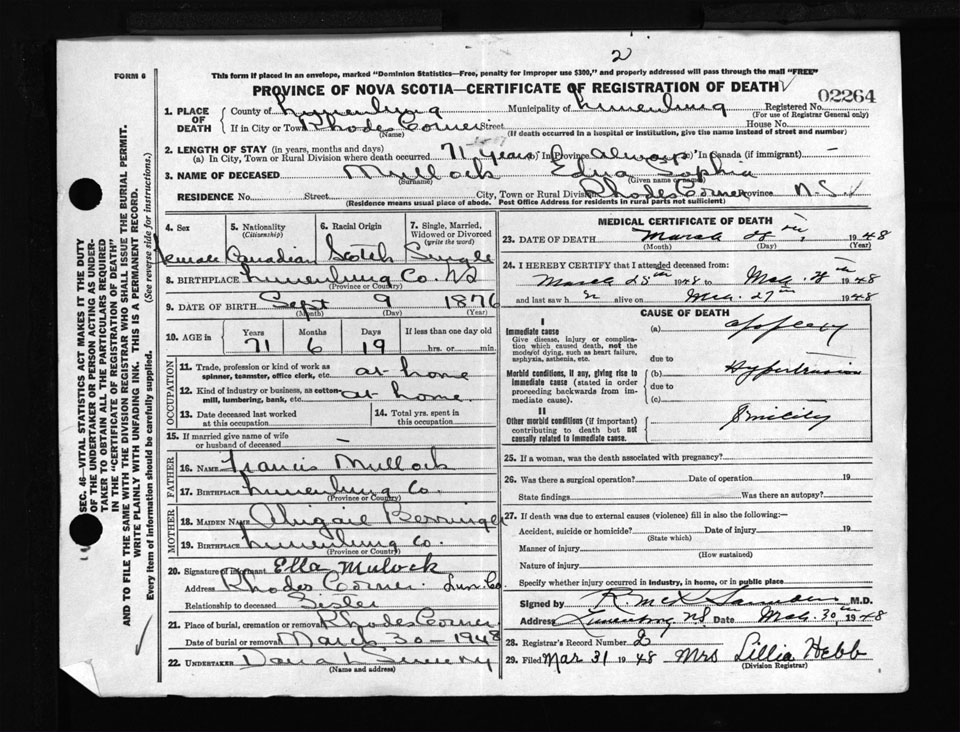 2
FORM 6
This form if placed in an envelope, marked "Dominion Statistics—Free, penalty for improper use $300," and properly addressed will pass through the mail "FREE"
PROVINCE OF NOVA SCOTIA—CERTIFICATE OF REGISTRATION OF DEATH
02264
1. PLACE OF DEATH
County of Lunenburg Municipality of Lunenburg Registered No.
(For use of Registrar General only)
If in City or Town Rhodes Corner Street House No.
(Name) (If death occurred in a hospital or institution, give the name instead of street and number)
2. LENGTH OF STAY (in years, months and days)
(a) In City, Town or Rural Division where death occurred 71 years In Province always In Canada (if immigrant) —
3. NAME OF DECEASED Mullock Edna Sophia
(Surname) (Given name or names)
RESIDENCE No. Street City, Town or Rural Division Rhodes Corner Province N.S.
(Residence means usual place of abode. Post Office Address for residents in rural parts not sufficient)
4. Sex
5. Nationality (Citizenship)
6. Racial Origin
7. Single, Married, Widowed or Divorced (write the word)
Female Canadian Scotch Single
8. BIRTHPLACE Lunenburg Co. NS
(Province or Country)
9. DATE OF BIRTH Sept 9 1876
(Month) (Day) (Year)
10. AGE in
Years Months Days If less than one day old
71 6 19 hrs. or min.
OCCUPATION
11. Trade, profession or kind of work as spinner, teamster, office clerk, etc. at home
12. Kind of industry or business, as cotton-mill, lumbering, bank, etc. at home
13. Date deceased last worked at this occupation
14. Total yrs. spent in this occupation
15. If married give name of wife or husband of deceased —
FATHER
16. NAME Francis Mullock
17. BIRTHPLACE Lunenburg Co.
(Province or Country)
MOTHER
18. MAIDEN NAME Abigail Berringer
19. BIRTHPLACE Lunenburg Co.
(Province or Country)
20. Signature of informant Ella Mulock
Address Rhodes Corner. Lun. Co.
Relationship to deceased Sister
21. Place of burial, cremation or removal Rhodes Corner
Date of burial or removal March 30 - 1948
22. UNDERTAKER Sweeny
(Name and address)
MEDICAL CERTIFICATE OF DEATH
23. DATE OF DEATH March 28th, 1948
(Month) (Day) (Year)
24. I HEREBY CERTIFY that I attended deceased from:
March 25th 1948 to Mch. 28th 1948
and last saw h er alive on Mch. 27th 1948
CAUSE OF DEATH
I
Immediate cause
Give disease, injury or complication which caused death, not the mode of dying, such as heart failure, asphyxia, asthenia, etc.
(a) apoplexy
due to
Morbid conditions, if any, giving rise to immediate cause (stated in order proceeding backwards from immediate cause).
(b) Hypertension
due to
(c)
II
Other morbid conditions (if important) contributing to death but not causally related to immediate cause.
Senility
25. If a woman, was the death associated with pregnancy?
26. Was there a surgical operation? Date of operation 19
State findings Was there an autopsy?
27. If death was due to external causes (violence) fill in also the following:—
Accident, suicide or homicide? Date of injury 19
(State which)
Manner of injury
(How sustained)
Nature of injury
Specify whether injury occurred in industry, in home, or in public place
Signed by M.D.
Address Lunenburg NS Date Mch. 30th 1948
28. Registrar's Record Number 2
29. Filed Mar 31 1948 Mrs Lillia Hebb
(Division Registrar)
SEC. 46—VITAL STATISTICS ACT MAKES IT THE DUTY
OF THE UNDERTAKER OR PERSON ACTING AS UNDER-
TAKER TO OBTAIN ALL THE PARTICULARS REQUIRED
IN THE "CERTIFICATE OF REGISTRATION OF DEATH"
AND TO FILE THE SAME WITH THE DIVISION REGISTRAR WHO SHALL ISSUE THE BURIAL PERMIT.
WRITE PLAINLY WITH UNFADING INK. THIS IS A PERMANENT RECORD.
Every item of information should be carefully supplied. (See reverse side for instructions.)